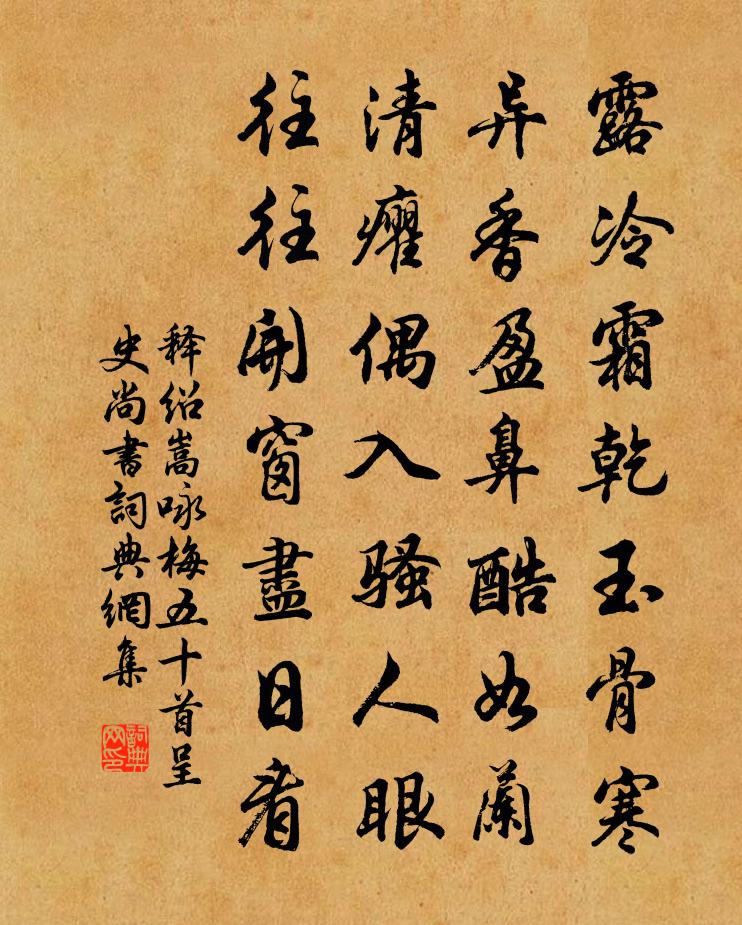 露冷霜乾玉骨寒
异香盈鼻酷如蘭
清癯偶入骚人眼
往往開窗盡日看
释绍嵩咏梅五十首呈
史尚書詞典網集
詞典网印